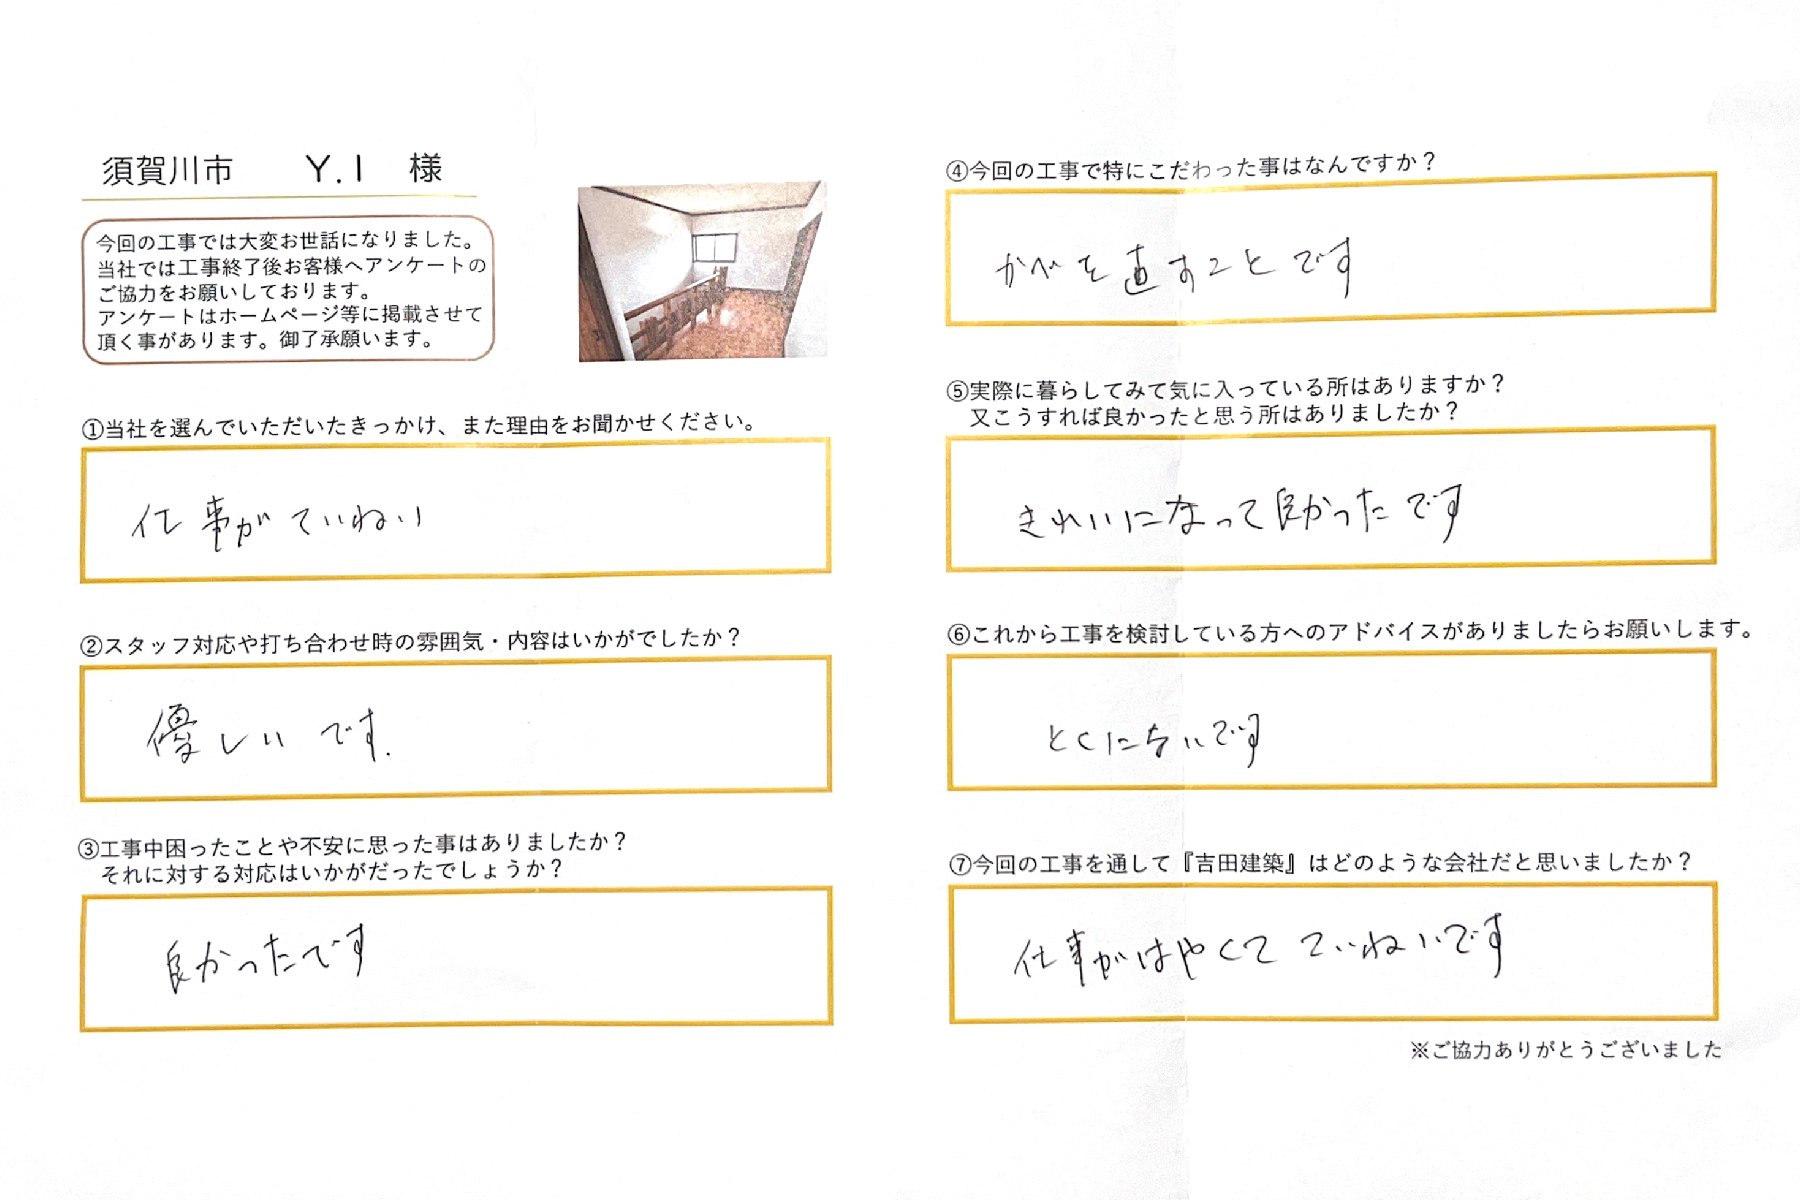 須賀川市 Y.I 様
今回の工事では大変お世話になりました。
当社では工事終了後お客様へアンケートの
ご協力をお願いしております。
アンケートはホームページ等に掲載させて
頂く事があります。御了承願います。
①当社を選んでいただいたきっかけ、また理由をお聞かせください。
仕事がていねい
②スタッフ対応や打ち合わせ時の雰囲気・内容はいかがでしたか？
優しいです.
③工事中困ったことや不安に思った事はありましたか？
それに対する対応はいかがだったでしょうか？
良かったです
④今回の工事で特にこだわった事はなんですか？
かべを直すことです
⑤実際に暮らしてみて気に入っている所はありますか？
又こうすれば良かったと思う所はありましたか？
きれいになって良かったです
⑥これから工事を検討している方へのアドバイスがありましたらお願いします。
とくにないです
⑦今回の工事を通して『吉田建築』はどのような会社だと思いましたか？
仕事がはやくて ていねいです
※ご協力ありがとうございました